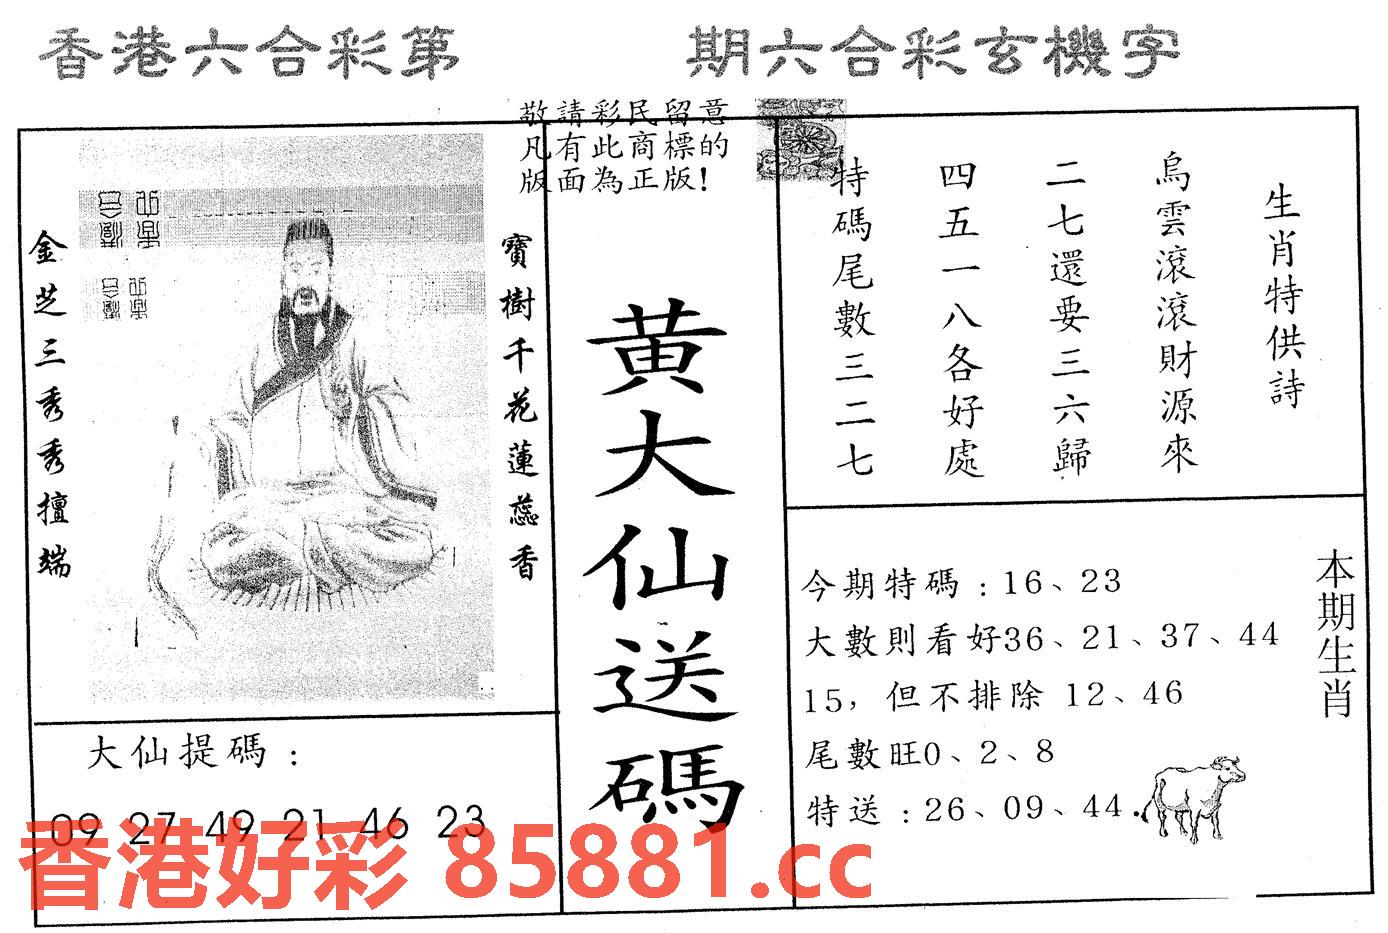 香港六合彩第 期六合彩玄機字
敬請彩民留意
凡有此商標的
版面為正版！
金芝三秀秀擅端
寶樹千花蓮蕊香
黃大仙送碼
生肖特供詩
烏雲滾滾財源來
二七還要三六歸
四五一八各好處
特碼尾數三二七
本期生肖
今期特碼：16、23
大數則看好36、21、37、44
15，但不排除 12、46
尾數旺0、2、8
特送：26、09、44.
大仙提碼：
09 27 49 21 46 23
香港好彩 85881.cc